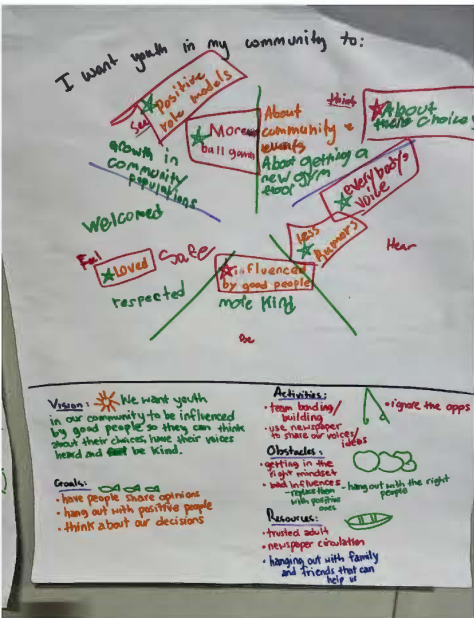 I want youth in my community to:
See
positive
role models
More
ball games
growth in
community
populations
About
community
events
About getting a
new gym
floor
think
About
there choice
everybodys
voice
Less
Rumors
Hear
welcomed
Feel
Loved
Safe
respected
influenced
by good people
more kind
Be
Vision: We want youth
in our community to be influenced
by good people so they can think
about their choices, have their voices
heard and be kind.
Goals:
• have people share opinions
• hang out with positive people
• think about our decisions
Activities:
• team bonding/
building
• use newspaper
to share our voices/
ideas
• ignore the opps
Obstacles:
• getting in the
right mindset
• bad influences
- replace them
with positive
ones
- hang out with the right
people
Resources:
• trusted adult
• newspaper circulation
• hanging out with family
and friends that can
help us